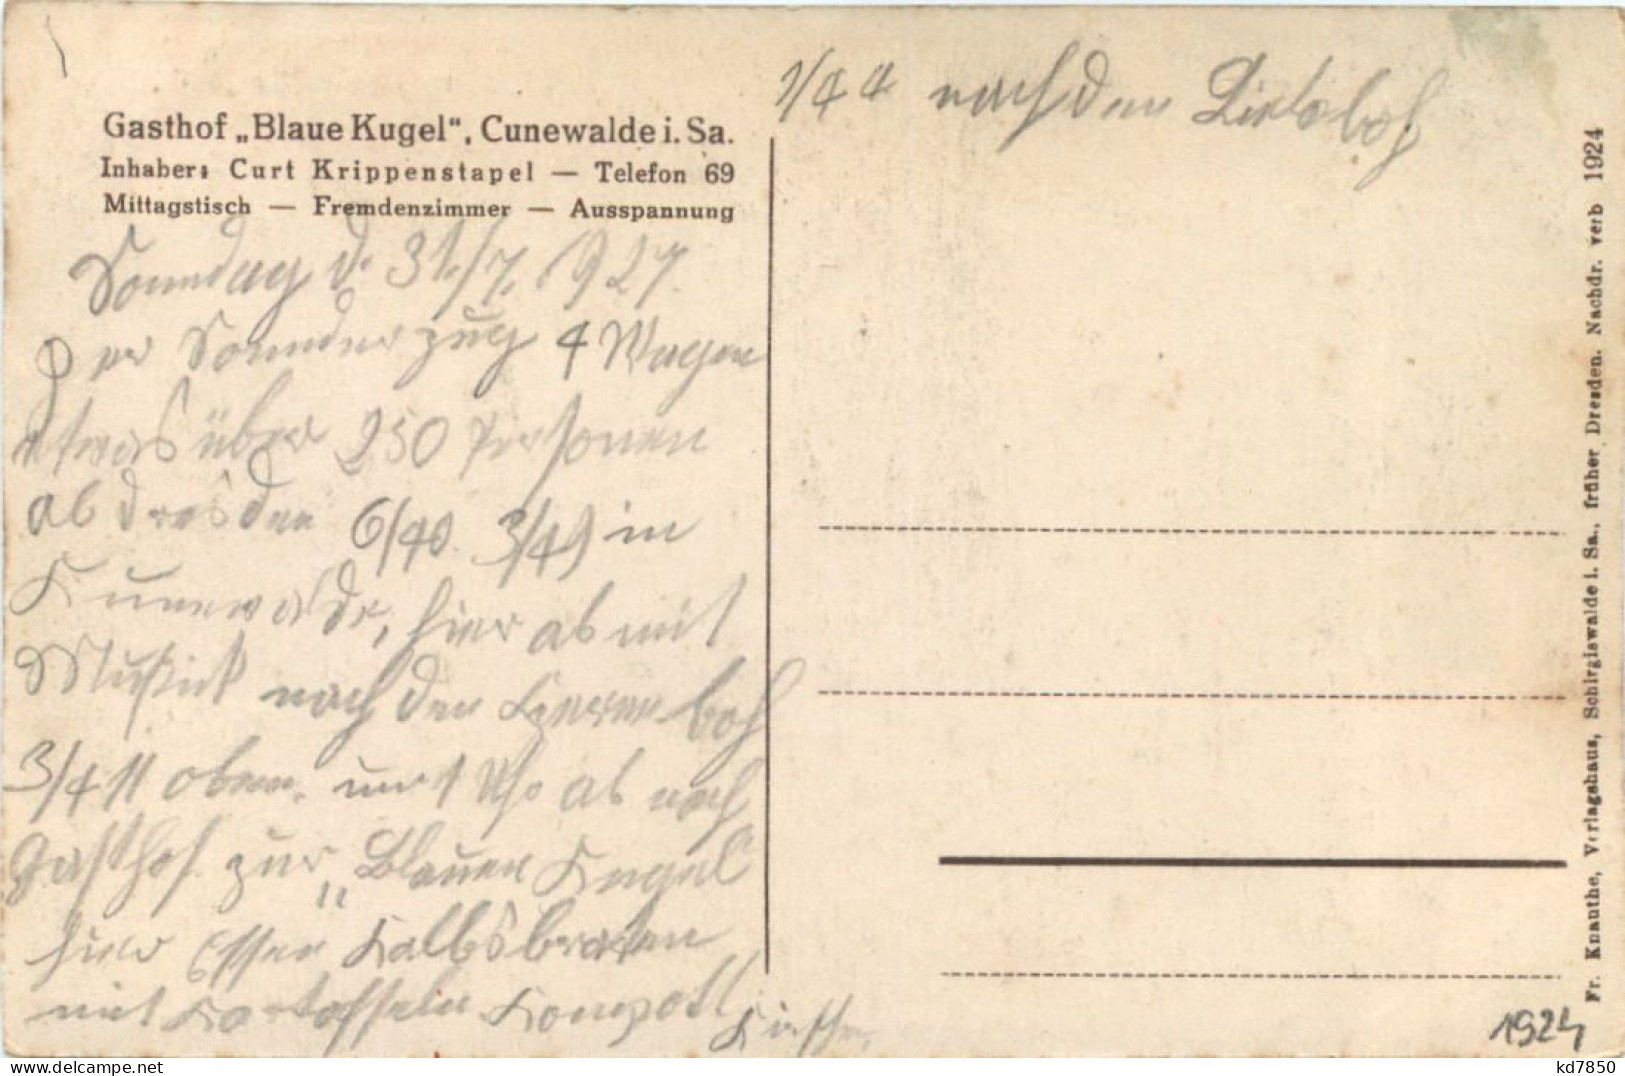 Gasthof „Blaue Kugel“, Cunewalde i. Sa.
Inhaber: Curt Krippenstapel — Telefon 69
Mittagstisch — Fremdenzimmer — Ausspannung
Sonndag d. 31./7. 1927.
Per Sonnderzug 4 Wagen
etwas über 250 Personen
ab Dresden 6/40. 3/49 in
Kunewalde, hier ab mit
Musick nach den
3/4 11 oben. um 1 Uhr ab nach
Gasthof zur „Blauen Kugel“
hier Essen Kalbsbraten
mit Kartoffeln Kompott
1/4 4 nach den
Fr. Knauthe, Verlagshaus, Schirgiswalde i. Sa., früher Dresden. Nachdr. verb 1924
1924
kd7850
delcampe.net